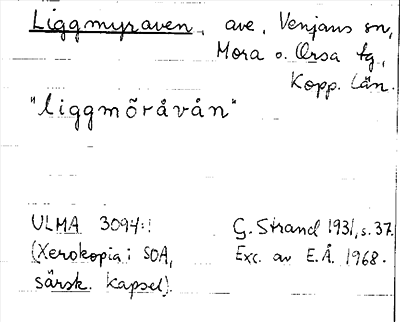 Liggmyraven, ave, Venjans sn,
Mora o. Orsa tg,
Kopp. län.
"liggmõråvån"
ULMA 3094:1 G. Strand 1931, s. 37.
(Xerokopia i SOA, Exc. av E.Å. 1968.
särsk. kapsel).